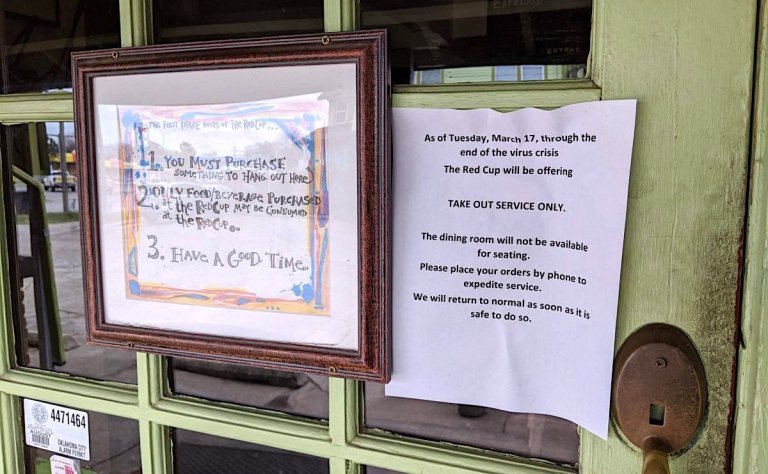 EXTRAS
THE FIRST THREE RULES OF THE RED CUP...
1. YOU MUST PURCHASE
SOMETHING TO HANG OUT HERE
2. ONLY FOOD/BEVERAGE PURCHASED
at the RED CUP MAY BE CONSUMED
at the RED CUP...
3. HAVE A GOOD TIME...
As of Tuesday, March 17, through the
end of the virus crisis
The Red Cup will be offering
TAKE OUT SERVICE ONLY.
The dining room will not be available
for seating.
Please place your orders by phone to
expedite service.
We will return to normal as soon as it is
safe to do so.
4471464
OKLAHOMA CITY
ALARM PERMIT